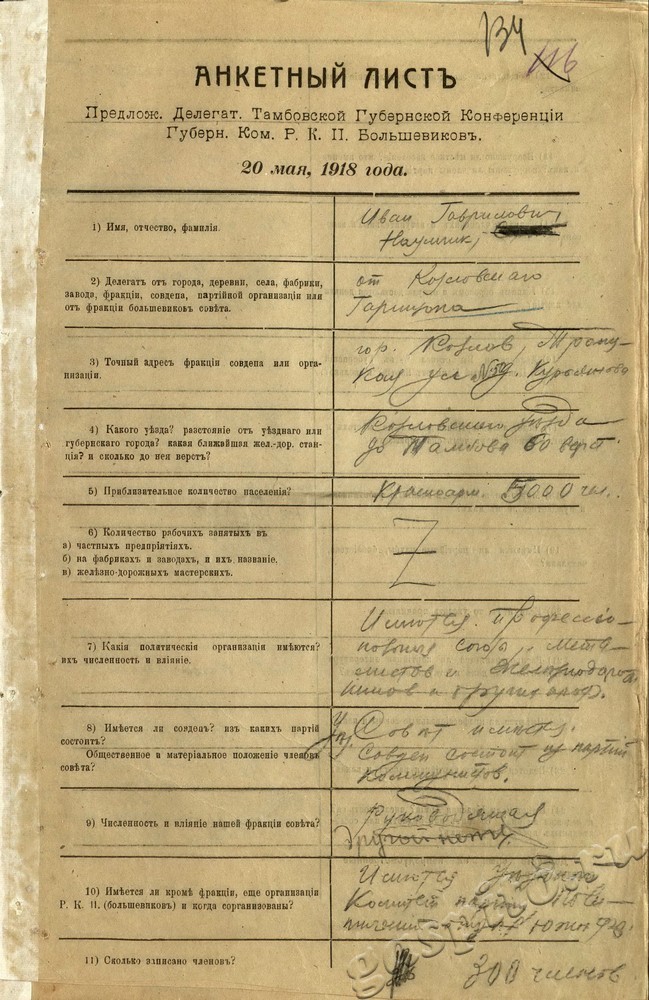 134
116
АНКЕТНЫЙ ЛИСТЪ
Предлож. Делегат. Тамбовской Губернской Конференціи
Губерн. Ком. Р. К. П. Большевиковъ.
20 мая, 1918 года.
1) Имя, отчество, фамилія.
Иван Гаврилович,
Наумчик,
2) Делегатъ отъ города, деревни, села, фабрики,
завода, фракціи, совдепа, партійной организаціи или
отъ фракціи большевиковъ совѣта.
от Козловскаго
Гарнизона
3) Точный адресъ фракціи совдепа или орга-
низаціи.
гор. Козлов,
4) Какого уѣзда? разстояніе отъ уѣзднаго или
губернскаго города? какая ближайшая жел.-дор. стан-
ція? и сколько до нея верстъ?
Козловскаго уѣзда
до Тамбова 60 верст
5) Приблизительное количество населенія?
Красноарм. 5000 чел.
6) Количество рабочихъ занятыхъ въ
а) частныхъ предпріятіяхъ.
б) на фабрикахъ и заводахъ, и ихъ названіе.
в) желѣзно-дорожныхъ мастерскихъ.
7) Какія политическія организаціи имѣются?
ихъ численность и вліяніе.
Имются професcио-
нальныя союзы, мета-
листов и железнодорож
ников и других проф.
8) Имѣется ли совдепъ? изъ какихъ партій
состоитъ?
Общественное и матеріальное положеніе членовъ
совѣта?
Совѣт имется.
Совдеп состоит из партій
Коммунистов.
9) Численность и вліяніе нашей фракціи совѣта?
Руководящая
10) Имѣется ли кромѣ фракціи, еще организаціи
Р. К. П. (большевиковъ) и когда сорганизованы?
Имются
Комитет партіи
11) Сколько записано членовъ?
300 членов